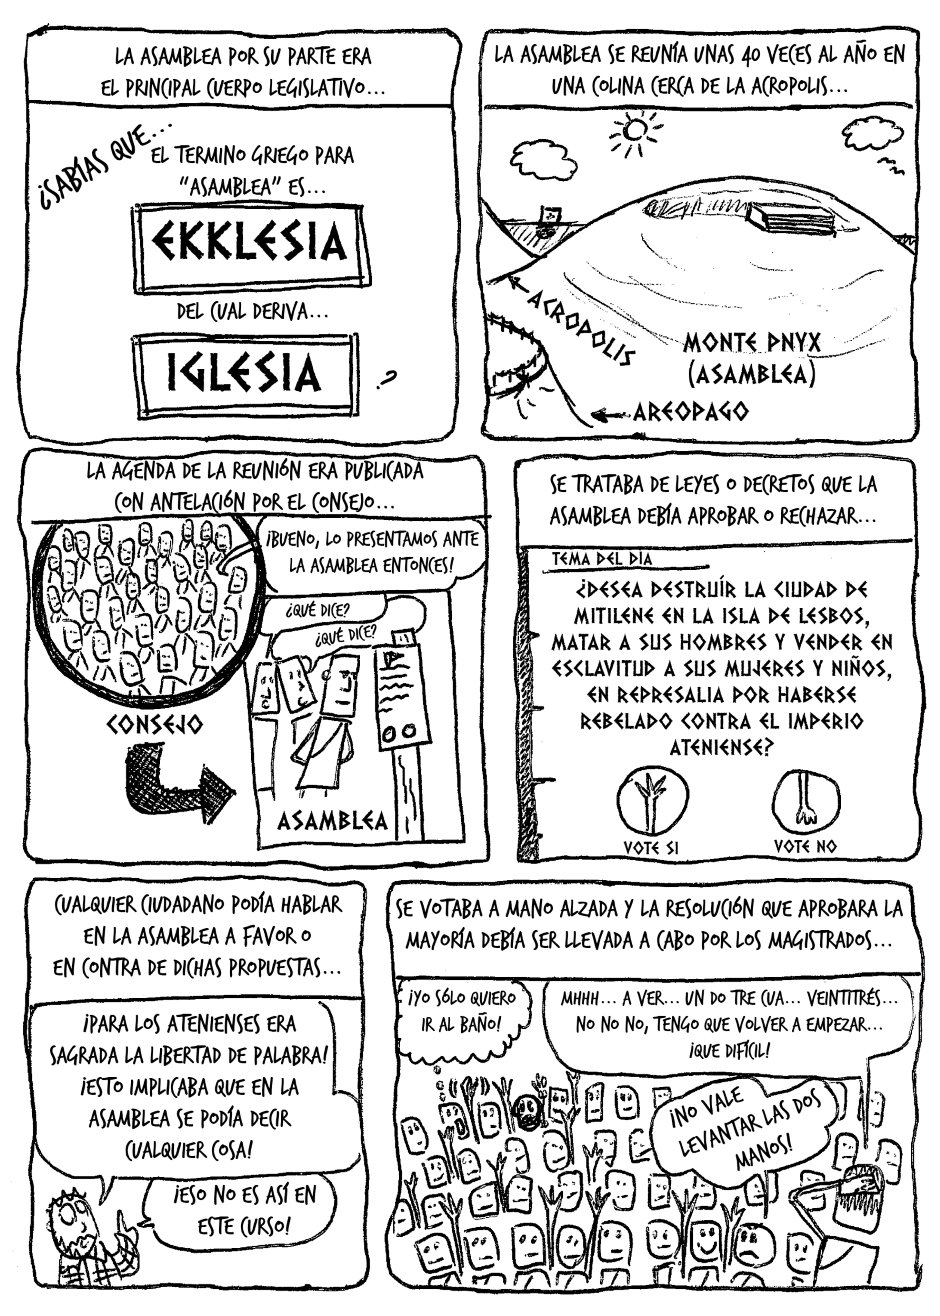 LA ASAMBLEA POR SU PARTE ERA
EL PRINCIPAL CUERPO LEGISLATIVO...
¿SABÍAS QUE...
EL TERMINO GRIEGO PARA
"ASAMBLEA" ES...
EKKLESIA
DEL CUAL DERIVA...
IGLESIA
LA ASAMBLEA SE REUNÍA UNAS 40 VECES AL AÑO EN
UNA COLINA CERCA DE LA ACROPOLIS...
ACROPOLIS
MONTE PNYX
(ASAMBLEA)
AREOPAGO
LA AGENDA DE LA REUNIÓN ERA PUBLICADA
CON ANTELACIÓN POR EL CONSEJO...
¡BUENO, LO PRESENTAMOS ANTE
LA ASAMBLEA ENTONCES!
¿QUÉ DICE?
¿QUÉ DICE?
CONSEJO
ASAMBLEA
SE TRATABA DE LEYES O DECRETOS QUE LA
ASAMBLEA DEBÍA APROBAR O RECHAZAR...
TEMA DEL DÍA
¿DESEA DESTRUÍR LA CIUDAD DE
MITILENE EN LA ISLA DE LESBOS,
MATAR A SUS HOMBRES Y VENDER EN
ESCLAVITUD A SUS MUJERES Y NIÑOS,
EN REPRESALIA POR HABERSE
REBELADO CONTRA EL IMPERIO
ATENIENSE?
VOTE SI
VOTE NO
CUALQUIER CIUDADANO PODÍA HABLAR
EN LA ASAMBLEA A FAVOR O
EN CONTRA DE DICHAS PROPUESTAS...
¡PARA LOS ATENIENSES ERA
SAGRADA LA LIBERTAD DE PALABRA!
¡ESTO IMPLICABA QUE EN LA
ASAMBLEA SE PODÍA DECIR
CUALQUIER COSA!
¡ESO NO ES ASÍ EN
ESTE CURSO!
SE VOTABA A MANO ALZADA Y LA RESOLUCIÓN QUE APROBARA LA
MAYORÍA DEBÍA SER LLEVADA A CABO POR LOS MAGISTRADOS...
¡YO SÓLO QUIERO
IR AL BAÑO!
MHHH... A VER... UN DO TRE CUA... VEINTITRÉS...
NO NO NO, TENGO QUE VOLVER A EMPEZAR...
¡QUE DIFÍCIL!
¡NO VALE
LEVANTAR LAS DOS
MANOS!